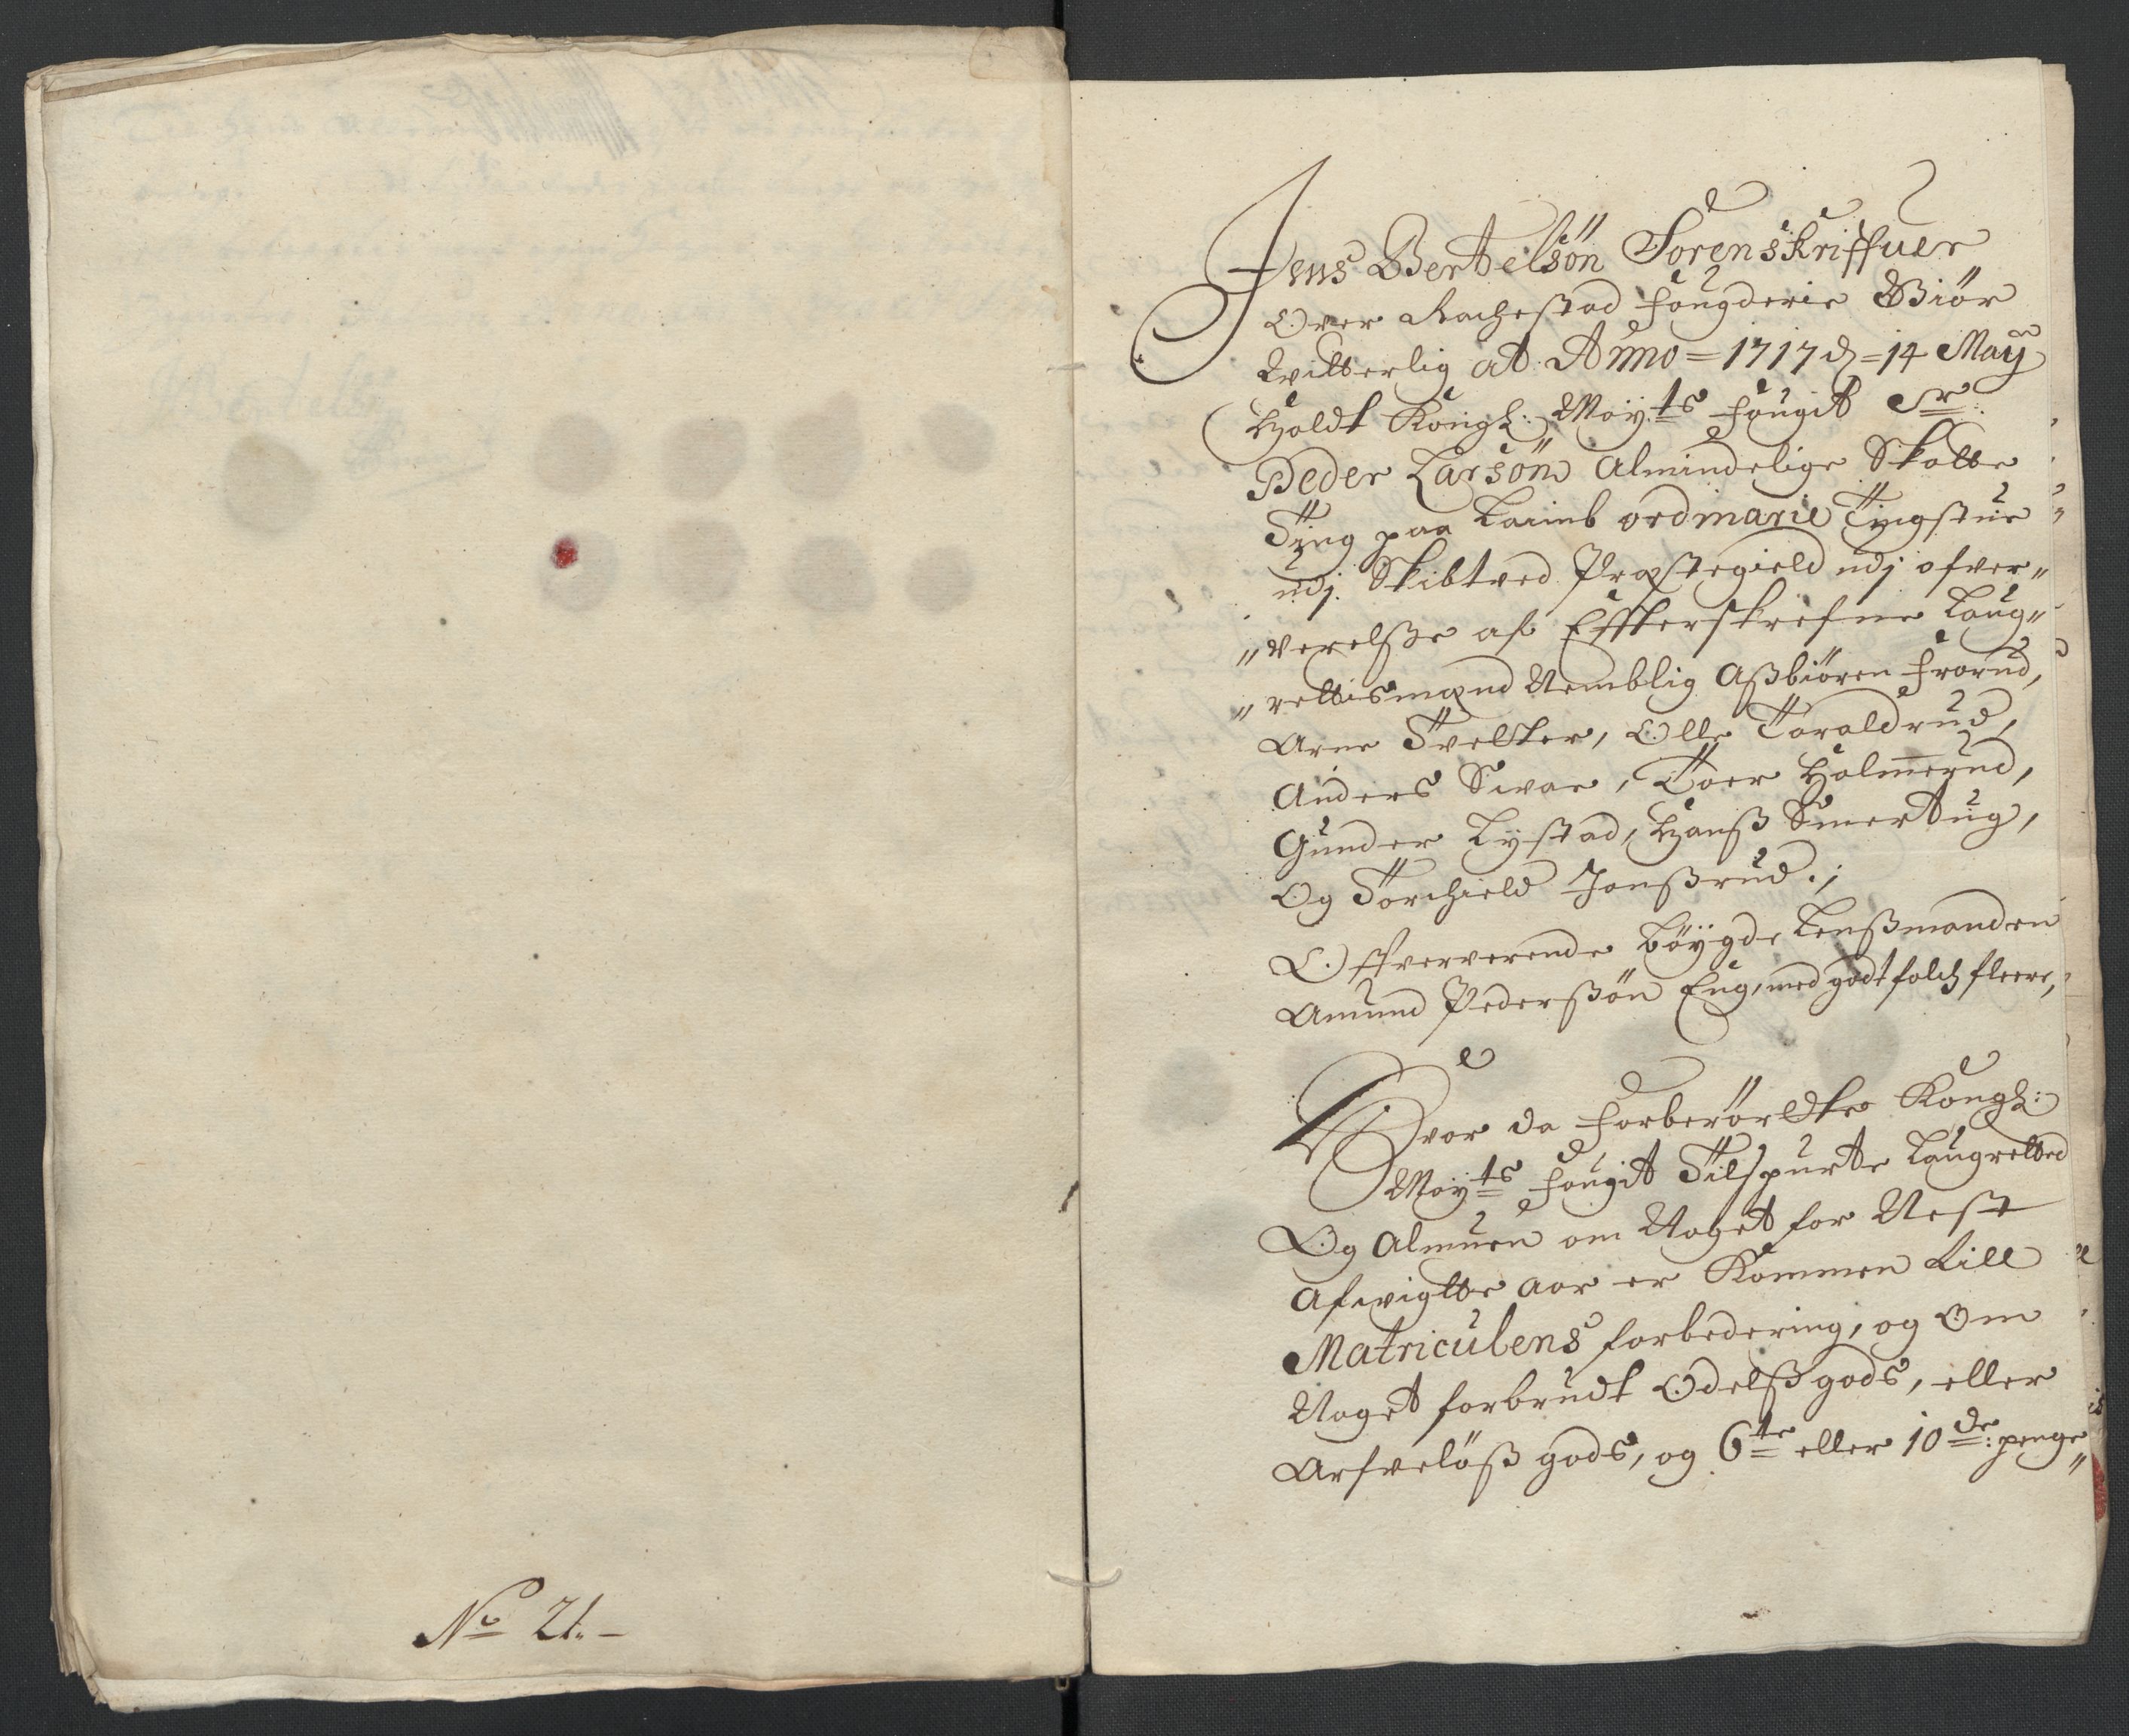 No 21.-
Jens Bertelsön Sorenskriffuer
Over Rachestad fougderie Giör
Vitterlig at Anno = 1717 d = 14 Maÿ
Holdt Kongl: Maÿ.ts fougit Sr.
Peder Larsön Almindelige Skatte
Ting paa ordinarie Tingstue
udj Skibtved Præstegield udj ofver„
„verelsse af Effterskrefne Laug„
„rettismænd Nemblig Assbiören Frorud,
Arne Tvetter, Olle Taraldrud,
Anders Svae, Toer Holmerud,
Gunder Lystad, Hanss Smertug,
Og Torchield Jonssrud.;
Offververende böygde Lenssmanden
Amund Pederssön Eug, med godtfolch fleere,
Hvor da Forberördte Kongl:
Maÿts fougit Tilspurte Laugretted
Og Almuen om Noget for Nest
afvigtte aar er Kommen till
Matriculens forbedering, og Om
Noget forbrudt Odelss gods, eller
Arfvelöss gods, og 6te eller 10de: penge„